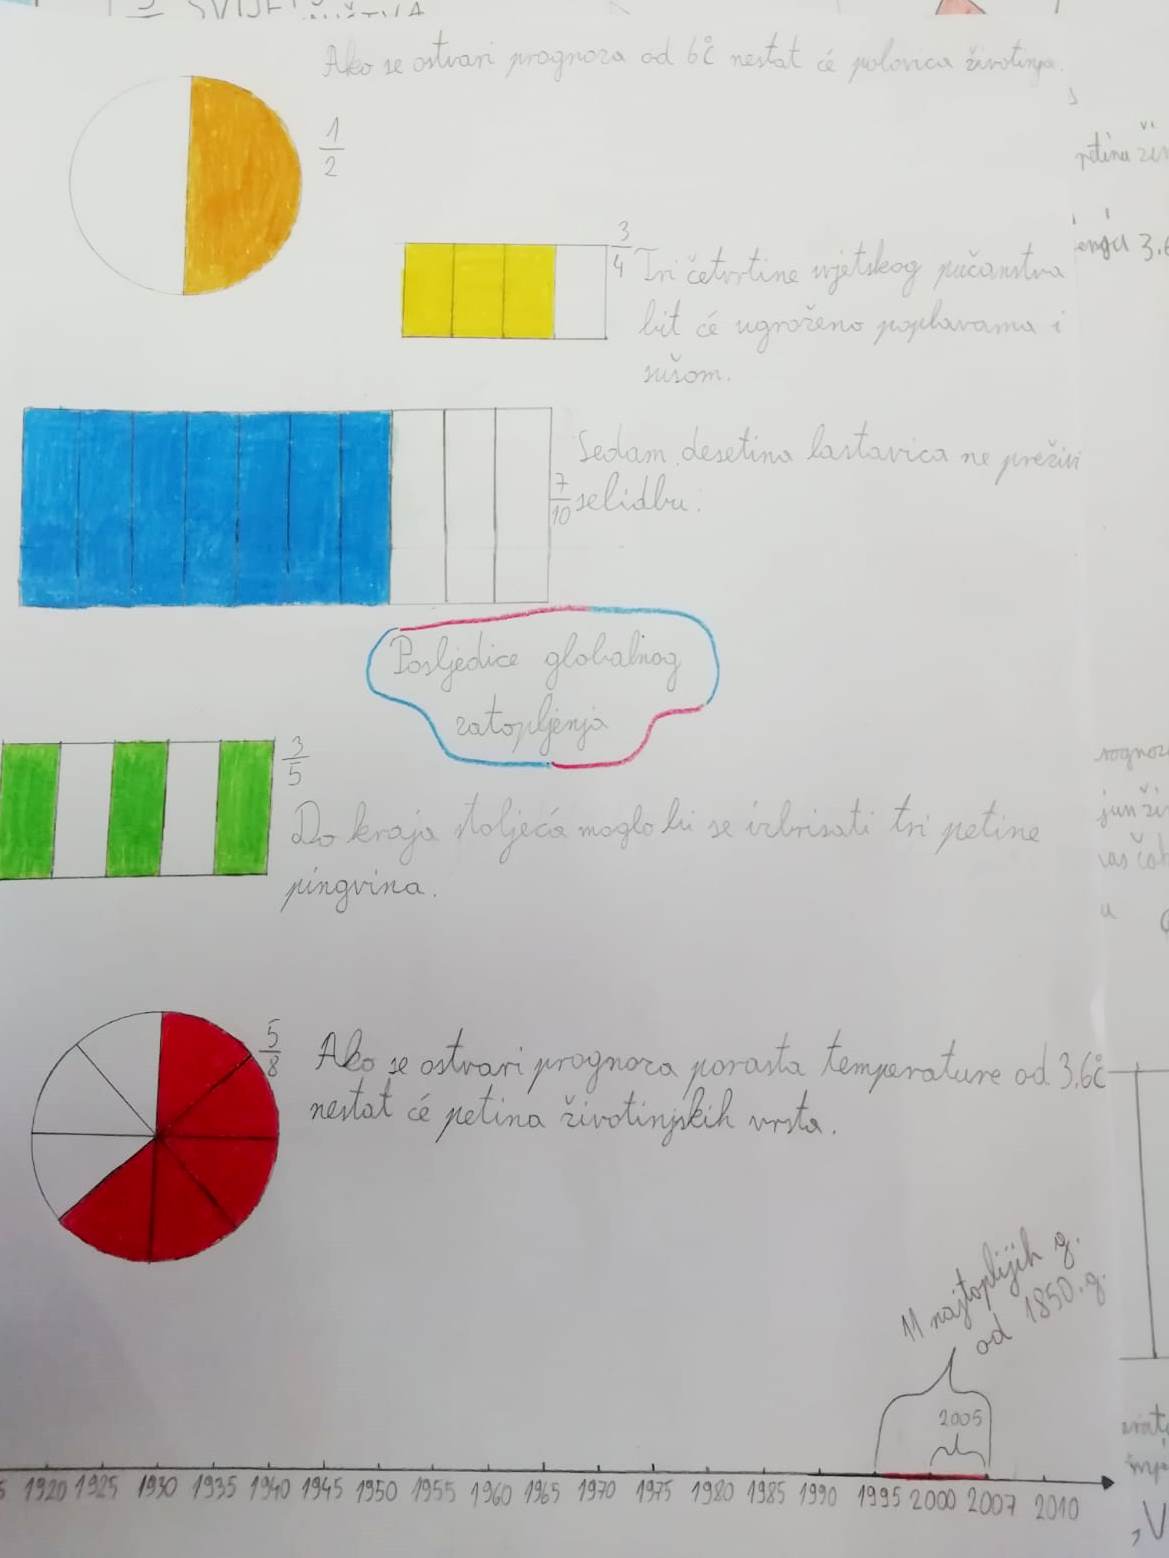 SVIJET
Ako se ostvari prognoza od 6°C nestat će polovica životinja.
1
2
3
4
Tri četvrtine svjetskog pučanstva
bit će ugroženo poplavama i
sušom.
Sedam desetina lastavica ne preživi
7
10
selidbu.
Posljedice globalnog
zatopljenja
3
5
Do kraja stoljeća moglo bi se izbrisati tri petine
pingvina.
5
8
Ako se ostvari prognoza porasta temperature od 3.6°C
nestat će petina životinjskih vrsta.
11 najtoplijih g.
od 1850.g.
2005
1920 1925 1930 1935 1940 1945 1950 1955 1960 1965 1970 1975 1980 1985 1990 1995 2000 2007 2010